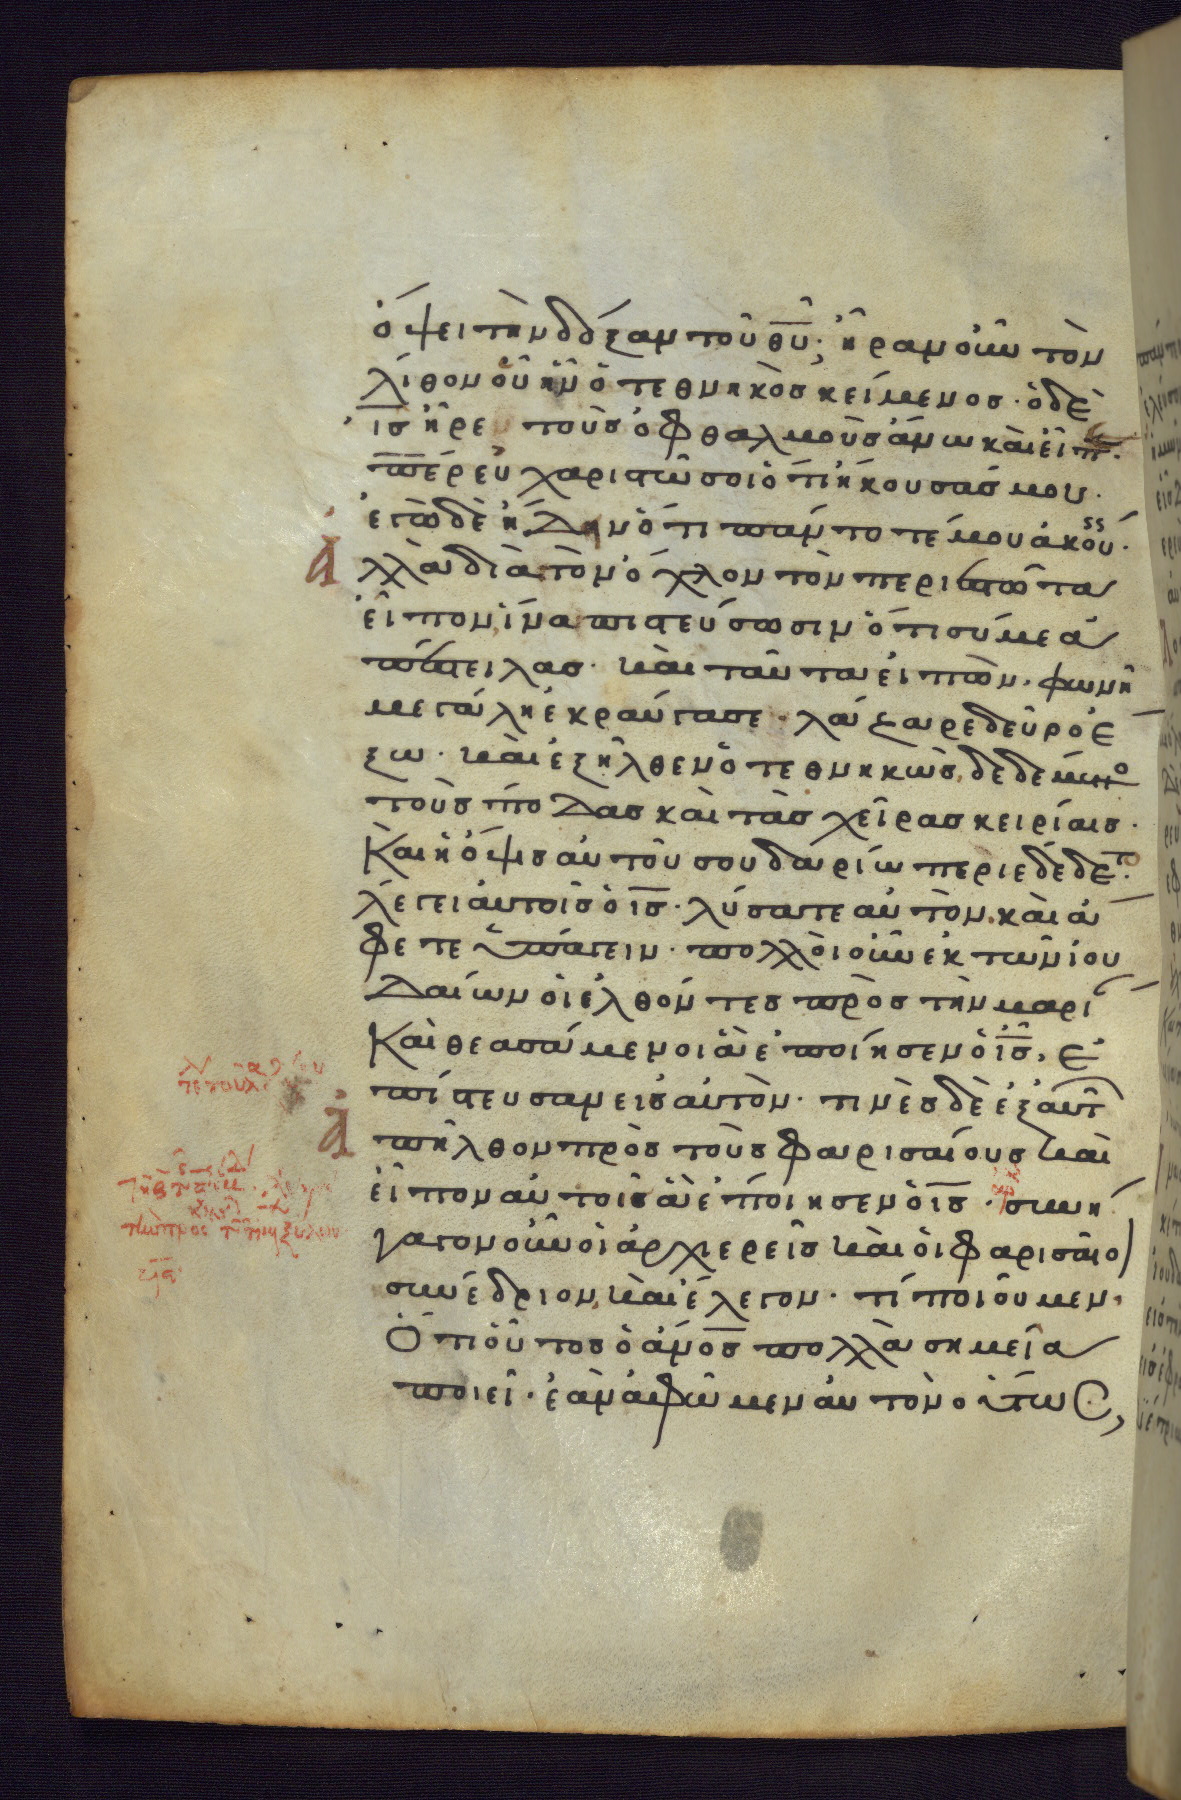 ὄψει τὴν δόξαν τοῦ θ̅υ̅; ἦραν οὖν τὸν
λίθον οὗ ἦν ὁ τεθνηκὸς κείμενος· ὁ δὲ
ι̅ς̅ ἦρε τοὺς ὀφθαλμοὺς ἄνω καὶ εἶπ·
π̅ε̅ρ εὐχαριστῶ σοι ὅτι ἤκουσάς μου·
ἐγὼ δὲ ἤδην ὅτι πάντοτέ μου ἀκού·
Ἀλλὰ διὰ τὸν ὄχλον τὸν περιεστῶτα
εἶπον, ἵνα πιστεύσωσιν ὅτι σύ με ἀ
πέστειλας· καὶ ταῦτα εἰπὼν· φωνῆ
μεγάλη ἐκραύγασε· λάζαρε δεῦρο ἔ
ξω· καὶ ἐξῆλθεν ὁ τεθνηκὼς, δεδεμένο
τοὺς πόδας καὶ τὰς χεῖρας κειρίαις·
Καὶ ἡ ὄψις αὐτοῦ σουδαρίω περιεδέδετο·
λέγει αὐτοῖς ὁ ι̅ς̅· λύσατε αὐτὸν, καὶ ἄ
φετε ὑπάγειν· πολλοὶ οὖν ἐκ τῶν ἰου
δαίων οἱ ἐλθόντες πρὸς τὴν μαρί
Καὶ θεασάμενοι ἃ ἐποίησεν ὁ ι̅ς̅, ἐ
πίστευσαν εἰς αὐτὸν· τινὲς δὲ ἐξ αὐτ
Ἀπῆλθον πρὸς τοὺς φαρισαίους καὶ
εἶπον αὐτοῖς ἃ ἐποίησεν ὁ ι̅ς̅· συνή
γαγον οὖν οἱ ἀρχιερεῖς καὶ οἱ φαρισαῖο
συνέδριον, καὶ ἔλεγον· τί ποιοῦμεν·
Ὅτι οὗτος ὁ α̅ν̅ο̅ς̅ πολλὰ σημεῖα
ποιεῖ· ἐὰν ἀφῶμεν αὐτὸν οὕτως,